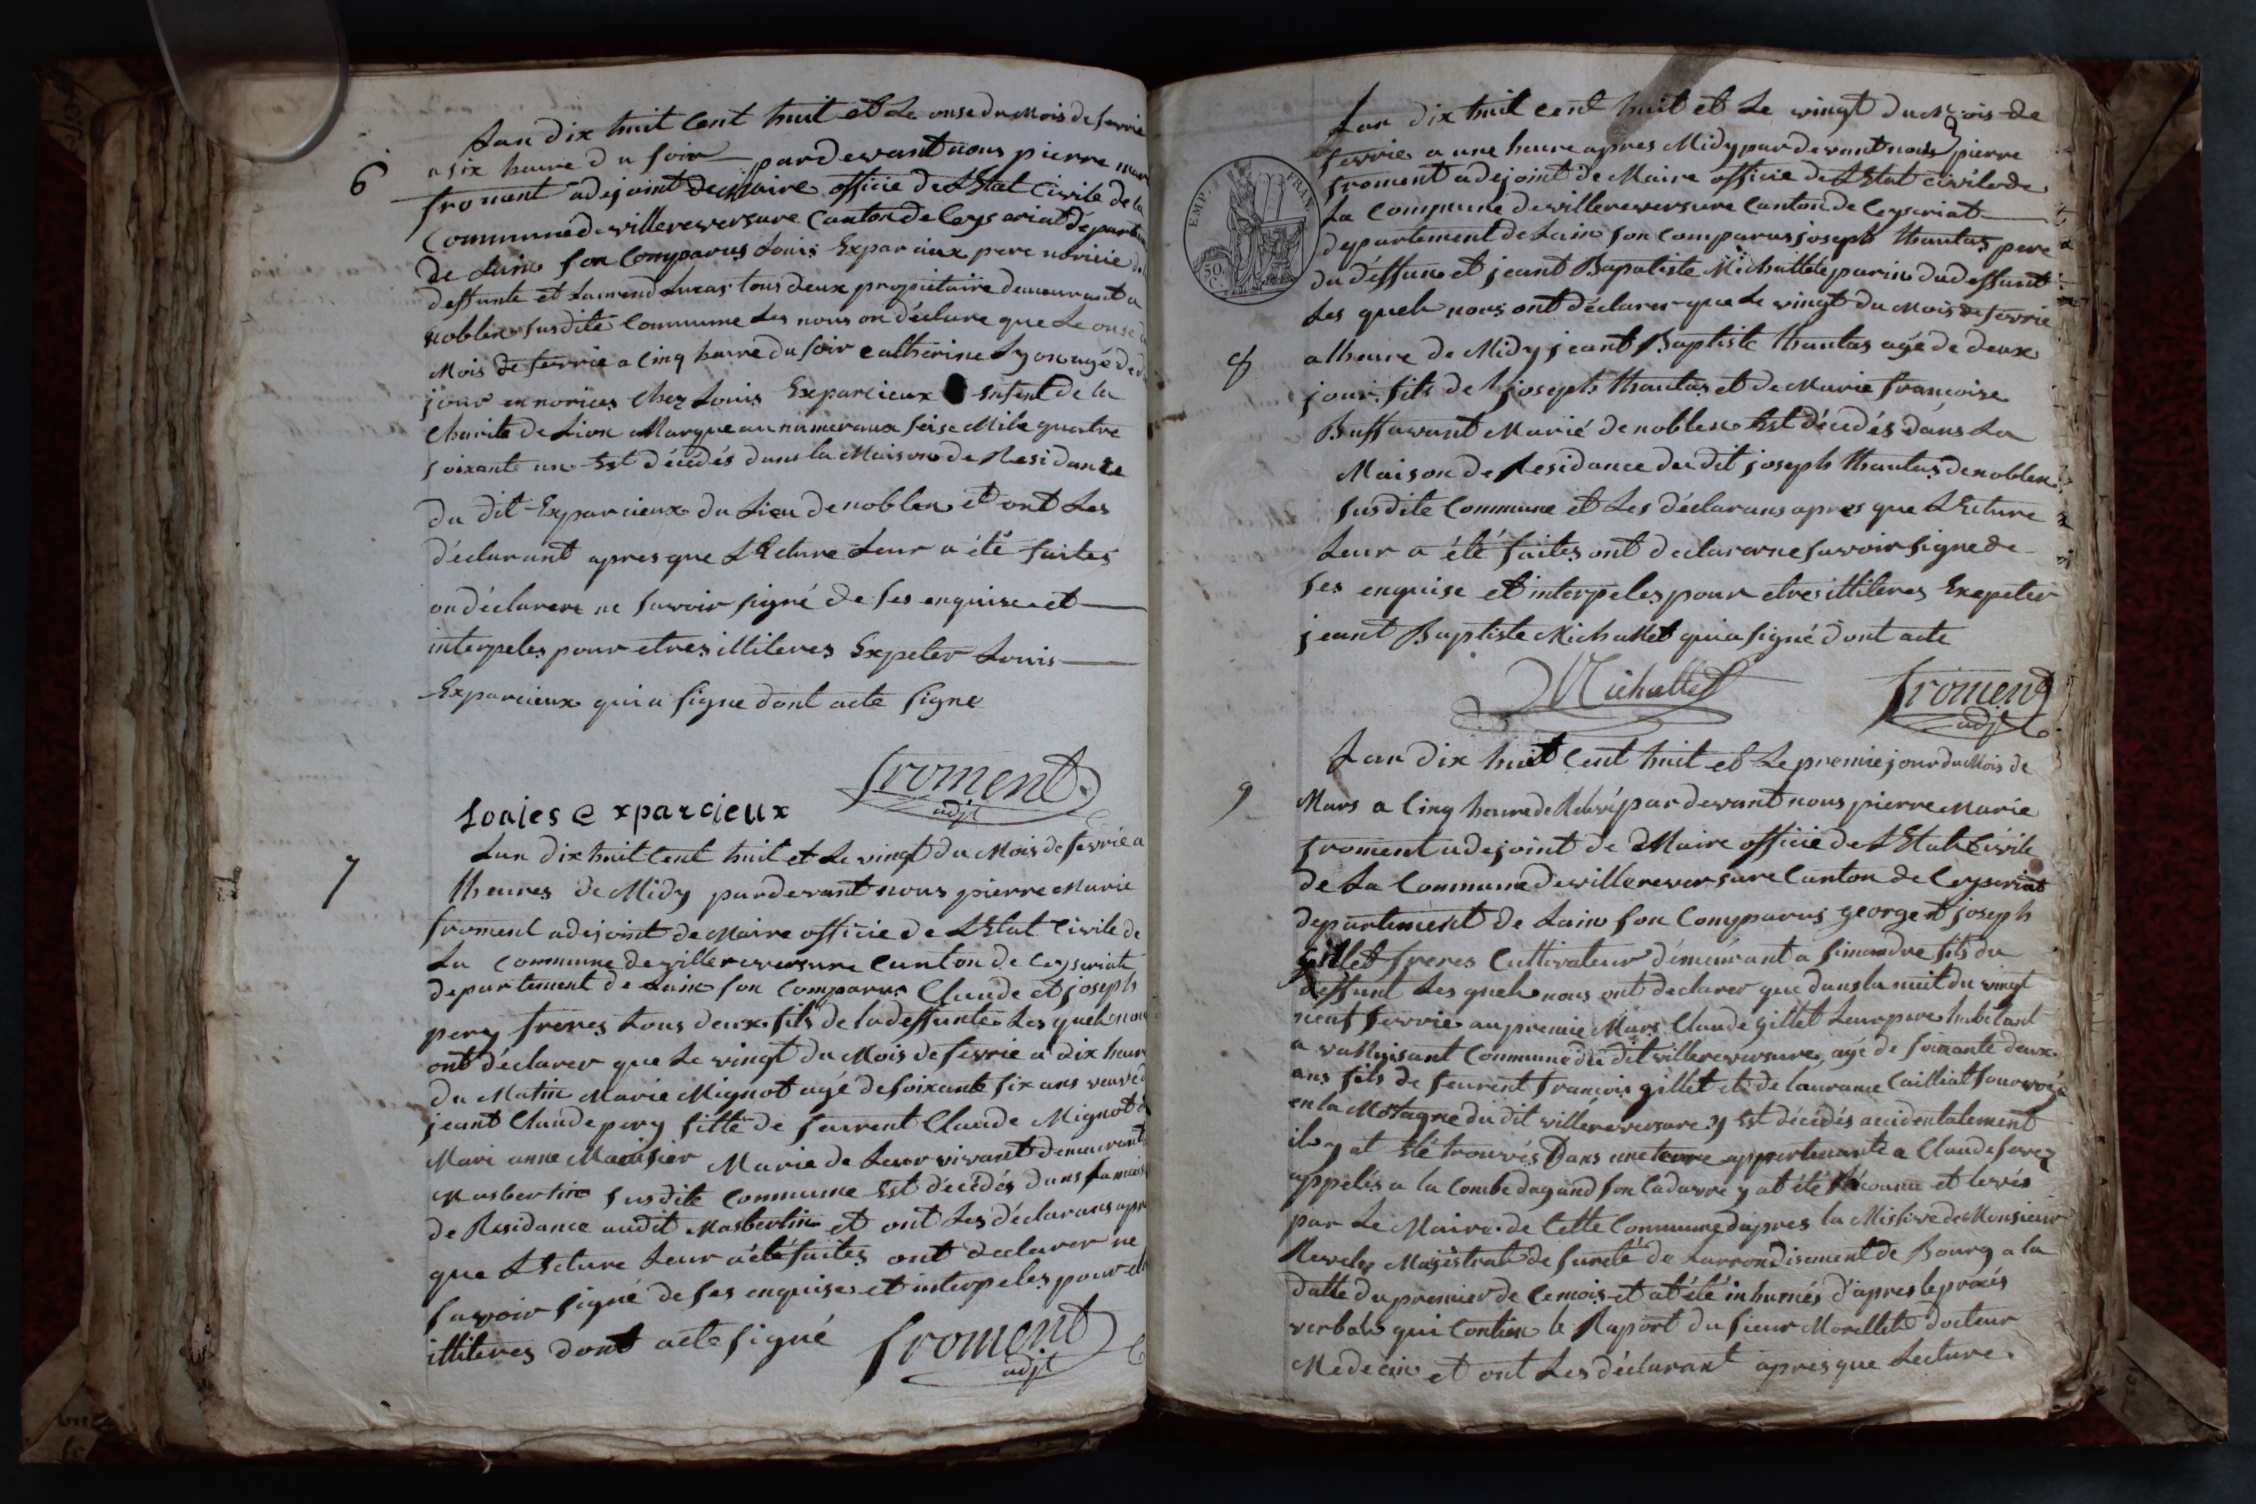 6
Lan dix huit Cent huit et Le onse du Mois de fevrie
a six heure du soir par devant nous pierre mar
froment adejoint de Maire officie de LEtat Civile de la
Commune de villereversure Canton de Ceyseriat départem
de Lain son Comparus Louis Exparcieux pere noricie de
deffunte et Laurend Lucas tous deux propietaire demeurant a
noblen susdite Commune Les nous on déclare que Le onse d
Mois de fevrie a Cinq heure du soir catherine Lyon agé de d
jour en norices Chez Louis Exparcieux Enfent de la
Charite de Lion Marque au numeraux seise Mile quatre
soixante un Est décédés dans la Maison de Residance
du dit Exparcieux du Lieu de noblen et ont Les
déclarant apres que LEcture Leur a été faites
on déclarere ne savoir signé de ses enquise et
interpeles pour etres illiteres Expeter Louis
Exparcieux qui a signe dont acte signe
froment
adjt
Louies exparcieux
7
Lan dix huit Cent huit et Le vingt du Mois de fevrié a
lheures de Midy pardevant nous pierre Marie
froment adejoint de Maire officie de LEtat Civile de
La Commune de villereversure Canton de Ceyseriat
departement de Lain son Comparus Claude et joseph
pery freres tous deux fils de la deffunte Les quels nou
ont déclarer que Le vingt du Mois de fevrie a dix heur
du Matin Marie Mignot agé de soixante six ans veuve d
jeant Claude pery fille de feurent Claude Mignot
Mari anne Marie de Leur vivant demeurant
Masbertin susdite Commune Est décédés dans sa mais
de Residance audit Masbertin et ont Les déclarans apre
que LEcture Leur a été faites ont declarer ne
savoir signé de ses enquise et interpeles pour et
illiteres dont acte signé
froment
adjt
EMP. FRAN.
50 C.
8
Lan dix huit cent huit et Le vingt du Mois de
fevrie a une heure apres Midy par devant nous pierre
froment adejoint de Maire officie de LEtat civile de
La Commune de villereversure Canton de Ceyseriat
departement de Lain son comparus joseph thantas pere
du déffunt et jeant Baptiste Michallet parin du deffunt
Les quels nous ont déclarer que Le vingt du Mois de fevrie
a lheure de Midy jeant Baptiste thantas agé de deux
jour fils de joseph thantas et de Marie francoise
Buffavant Marié de noblen Est décédés dans La
Maison de Residance du dit joseph thantas de noblen
susdite Commune et Les déclarans apres que LEcture
Leur a été faites ont declarer ne savoir signe de
ses enquise et interpeles pour etres illiteres Exepeter
jeant Baptiste Michallet qui a signé dont acte
Michallet
froment
adjt
9
Lan dix huit Cent huit et Le premie jour du Mois de
Mars a Cinq heure de par devant nous pierre Marie
froment adejoint de Maire officie de LEtat Civile
de La Commune de villereversure Canton de Ceyseriat
departement de Lain son Comparus george et joseph
gillet freres Cultivateur démeurant a simandre fils du
deffunt Les quels nous ont declarer que dans la nuit du vingt
neuf fevrie au premie Mars Claude gillet Leur pere habitant
a valluisant Commune du dit villereversure, agé de soixante deux
ans fils de feurent francois gillet et de laurance Cailliat
en la Motagne du dit villereversure y Est décédés accidentalement
il y at été trouvés Dans une terre appartenante a Claude
appelés a la Combe dagand son Cadavre y at été réconnu et levés
par Le Maire de Cette Commune dapres la Missive de Monsieur
Magistrat de sureté de Larrondisement de Bourg a la
datte du premier de Ce mois et at été inhumés d'apres le procés
verbale qui Contien le Raport du sieur Morellet docteur
Medecin et ont Les déclarant apres que Lecture.